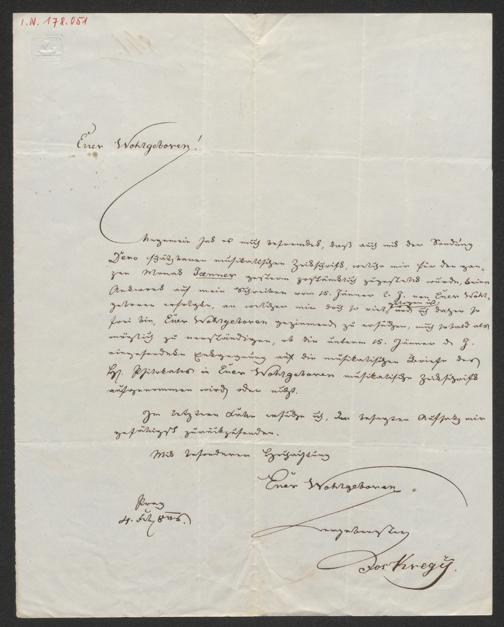 I.N. 178.051
Euer Wohlgeboren!
Ungemein hat es mich befremdet, daß auch mit der Sendung
Dero schätzbaren musikalischen Zeitschrift, welche mir für den gan-
zen Monat Jänner gestern zugestellt wurde, keine
Antwort auf mein Schreiben vom 15. Jänner l. J. von Euer Wohl-
geboren erfolgte, an welchem mir doch so viel gelegen ist, und ich daher so
frei bin, Euer Wohlgeboren zu ersuchen, mich sobald als
möglich zu verständigen, ob die unterm 15. Jänner d. J.
eingesendete Entgegnung auf die musikalischen Briefe des
in Euer Wohlgeboren musikalische Zeitschrift
aufgenommen wird oder nicht.
Im letzteren Falle ersuche ich, den besagten Aufsatz mir
gefälligst zurückzusenden.
Mit besonderer Hochachtung
Euer Wohlgeboren
Prag
4.
ergebenster
Jos Kregy.